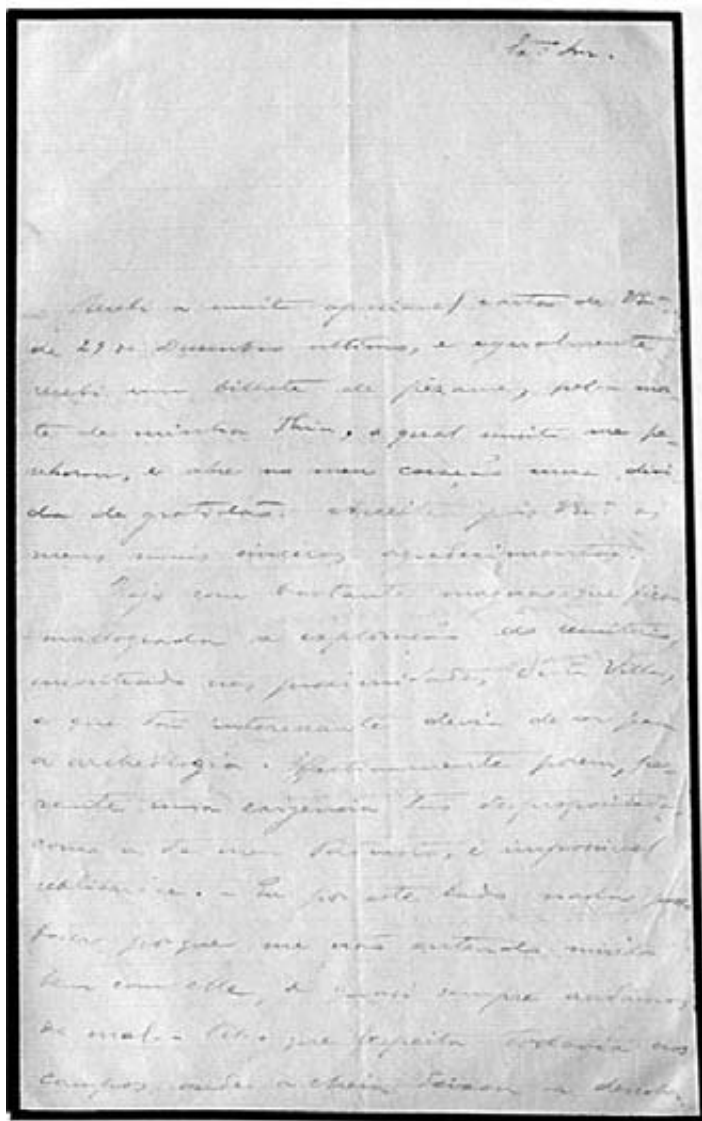 Ex.mo Snr.
Recebi a muito apreciavel carta de V.Ex.a
de 29 de Dezembro ultimo, e egualmente
recebi um bilhete de pêzames, pela mor-
te de minha Thia, o qual muito me pe-
nhorou, e abre no meu coração uma divi-
da de gratidão. Acceite pois V.Ex.a os
meus mais sinceros agradecimentos.
Vejo com bastante magua que ficou
mallograda a exploração do cemiterio,
encontrado nas proximidades d'esta Villa,
e que tão interessante devia de ser para
a archeologia. Effectivamente porem, pe-
rante uma exigencia tão desproposita
como a de meu, é impossivel
. - Eu por este lado nada posso
fazer, porque me não entendo muito
bem com elle, e quasi sempre andamos
de mal. Pelo que respeita todavia aos
campos, onde a cheia deixou a desco-